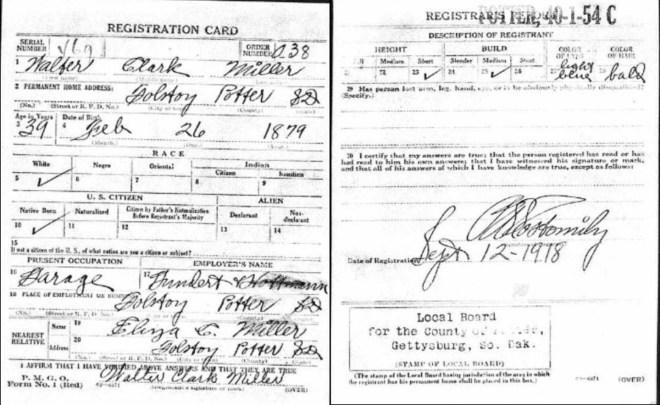 REGISTRATION CARD
SERIAL NUMBER
ORDER NUMBER
1 Walter Clark Miller
2 PERMANENT HOME ADDRESS:
Tolstoy Potter SD
(No.) (Street or R. F. D. No.)
Age in Years Date of Birth
3 39 4 Feb 26 1879
RACE
White Negro Oriental Indian
Citizen
5 6 7 8 9
U. S. CITIZEN ALIEN
Native Born Naturalized Citizen by Father's Naturalization Before Registrant's Majority Declarant Non-declarant
10 11 12 13 14
15
If not a citizen of the U. S., of what nation are you a citizen or subject?
PRESENT OCCUPATION EMPLOYER'S NAME
16 Garage 17
18 PLACE OF EMPLOYMENT OR BUSINESS
Tolstoy Potter SD
NEAREST RELATIVE
Name 19 Eliza C. Miller
Address 20 Tolstoy Potter SD
I AFFIRM THAT I HAVE VERIFIED ABOVE ANSWERS AND THAT THEY ARE TRUE
P. M. G. O.
Form No. 1 (Red) Walter Clark Miller (OVER)
REGISTRAR'S
POTTER, 40-1-54 C
DESCRIPTION OF REGISTRANT
HEIGHT BUILD COLOR OF EYES COLOR OF HAIR
Medium Short Slender Medium Stout
22 23 24 25 26
light blue bald
29 Has person lost arm, leg, hand, eye, or is he obviously physically disqualified?
(Specify.)
30 I certify that my answers are true; that the person registered has read or has
had read to him his own answers; that I have witnessed his signature or mark,
and that all of his answers of which I have knowledge are true, except as follows:
Date of Registration Sept 12-1918
Local Board
for the County of Potter,
Gettysburg, So. Dak.
(STAMP OF LOCAL BOARD)
(The stamp of the Local Board having jurisdiction of the area in which
the registrant has his permanent home shall be placed in this box.)
(OVER)